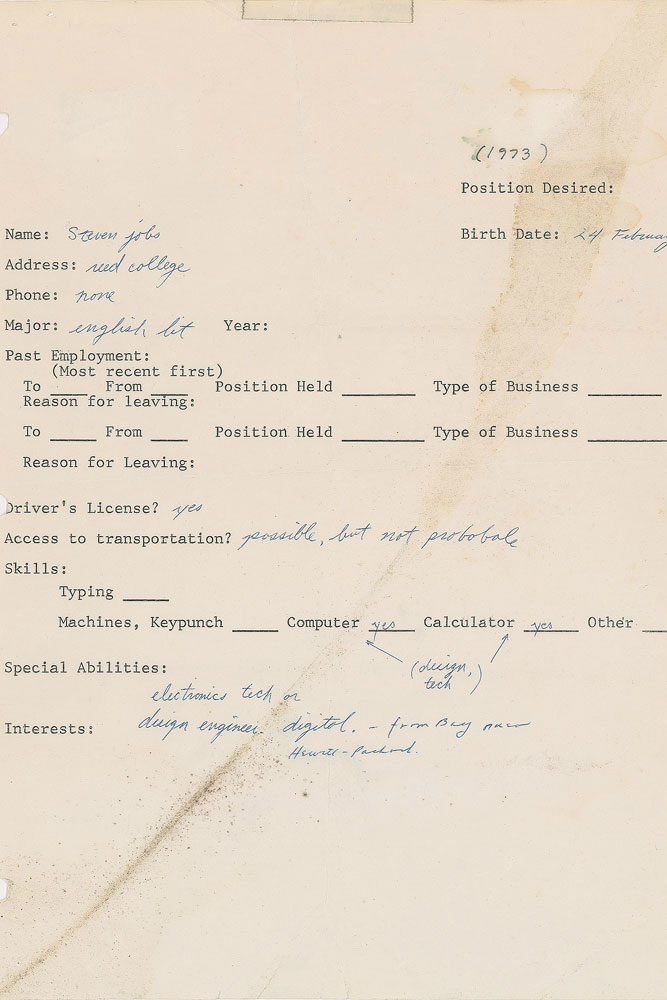 (1973)
Position Desired:
Name: Steven jobs Birth Date: 24 Februa
Address: reed college
Phone: none
Major: english lit Year:
Past Employment:
(Most recent first)
To ____ From ____ Position Held ________ Type of Business ________
Reason for leaving:
To _____ From ____ Position Held _________ Type of Business ________
Reason for Leaving:
Driver's License? yes
Access to transportation? possible, but not probobale
Skills:
Typing _____
Machines, Keypunch _____ Computer yes Calculator yes Other ___
(design,
tech)
Special Abilities:
electronics tech or
Interests: design engineer. digital. - from Bay near
Hewitt-Packard.